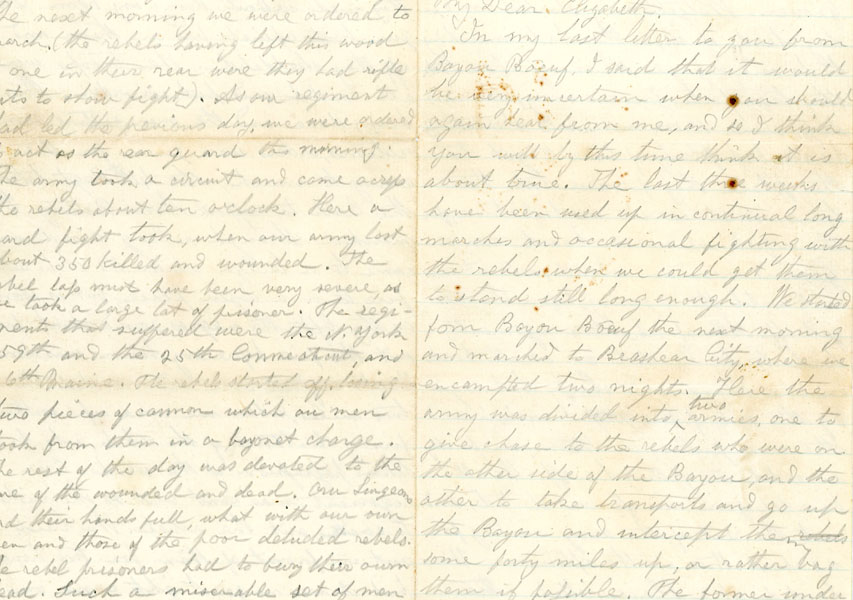 he next morning we were ordered to
arch, (the rebels having left this wood
one in their rear were they had rifle
its to show fight). As our regiment
had led the previous day, we were ordered
act as the rear guard this morning.
he army took a circuit and came across
the rebels about ten o'clock. Here a
ard fight took, when our army lost
bout 350 killed and wounded. The
ebel loss must have been very severe, as
e took a large lot of prisoner. The regi-
ments that suffered were the N. York
59th and the 25th Connecticut, and
6th Maine. The rebels started off, losing
two pieces of cannon which our men
ook from them in a bayonet charge.
he rest of the day was devoted to the
are of the wounded and dead. Our Surgeons
ad their hands full, what with our own
en and those of the poor deluded rebels.
he rebel prisoners had to bury their own
ead. Such a miserable set of men
My Dear. Elizabeth.
In my last letter to you from
Bayou Boeuf, I said that it would
be very uncertain when you should
again hear from me, and so I think
you will by this time think it is
about true. The last three weeks
have been used up in continual long
marches and occasional fighting with
the rebels when we could get them
to stand still long enough. We started
from Bayou Boeuf the next morning
and marched to Brashear City, where we
encampted two nights. Here the
army was divided into two armies, one to
give chase to the rebels who were on
the other side of the Bayou, and the
other to take transports and go up
the Bayou and intercept the rebels
some forty miles up, or rather bag
them if possible. The former under